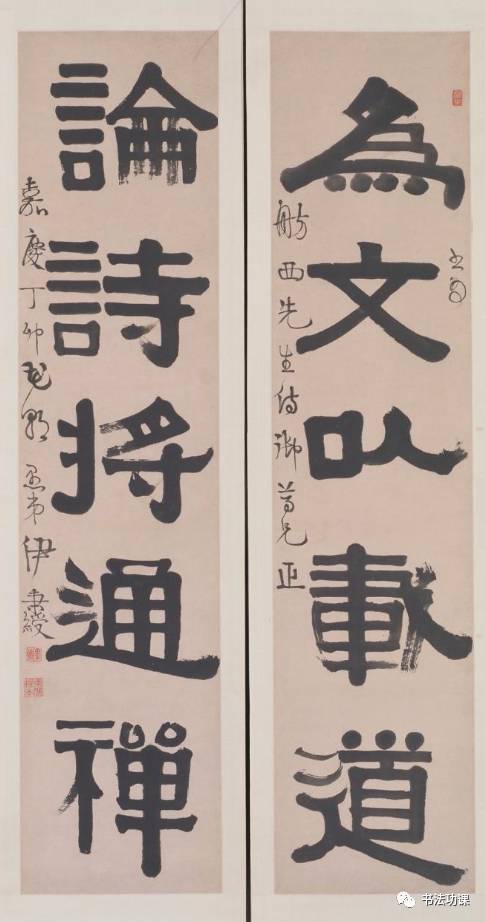 為文以載道
舫西先生侍御尊兄正
論詩將通禪
嘉慶丁卯花朝愚弟伊秉綬
书法功课